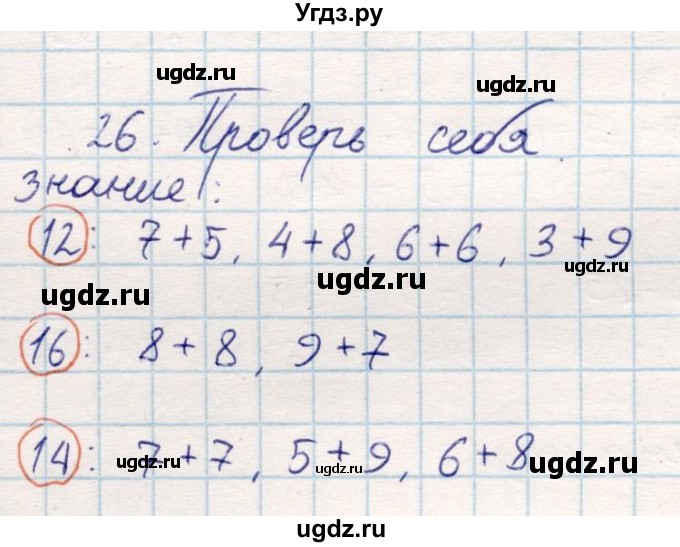 Угдз.ру
ugdz.ru ugdz.ru
26. Проверь себя
знание:
ugdz.ru
12: 7+5, 4+8, 6+6, 3+9
ugdz.ru ugdz.ru ugdz.ru
16: 8+8, 9+7
14: 7+7, 5+9, 6+8
ugdz.ru ugdz.ru ugdz.ru
ugdz.ru